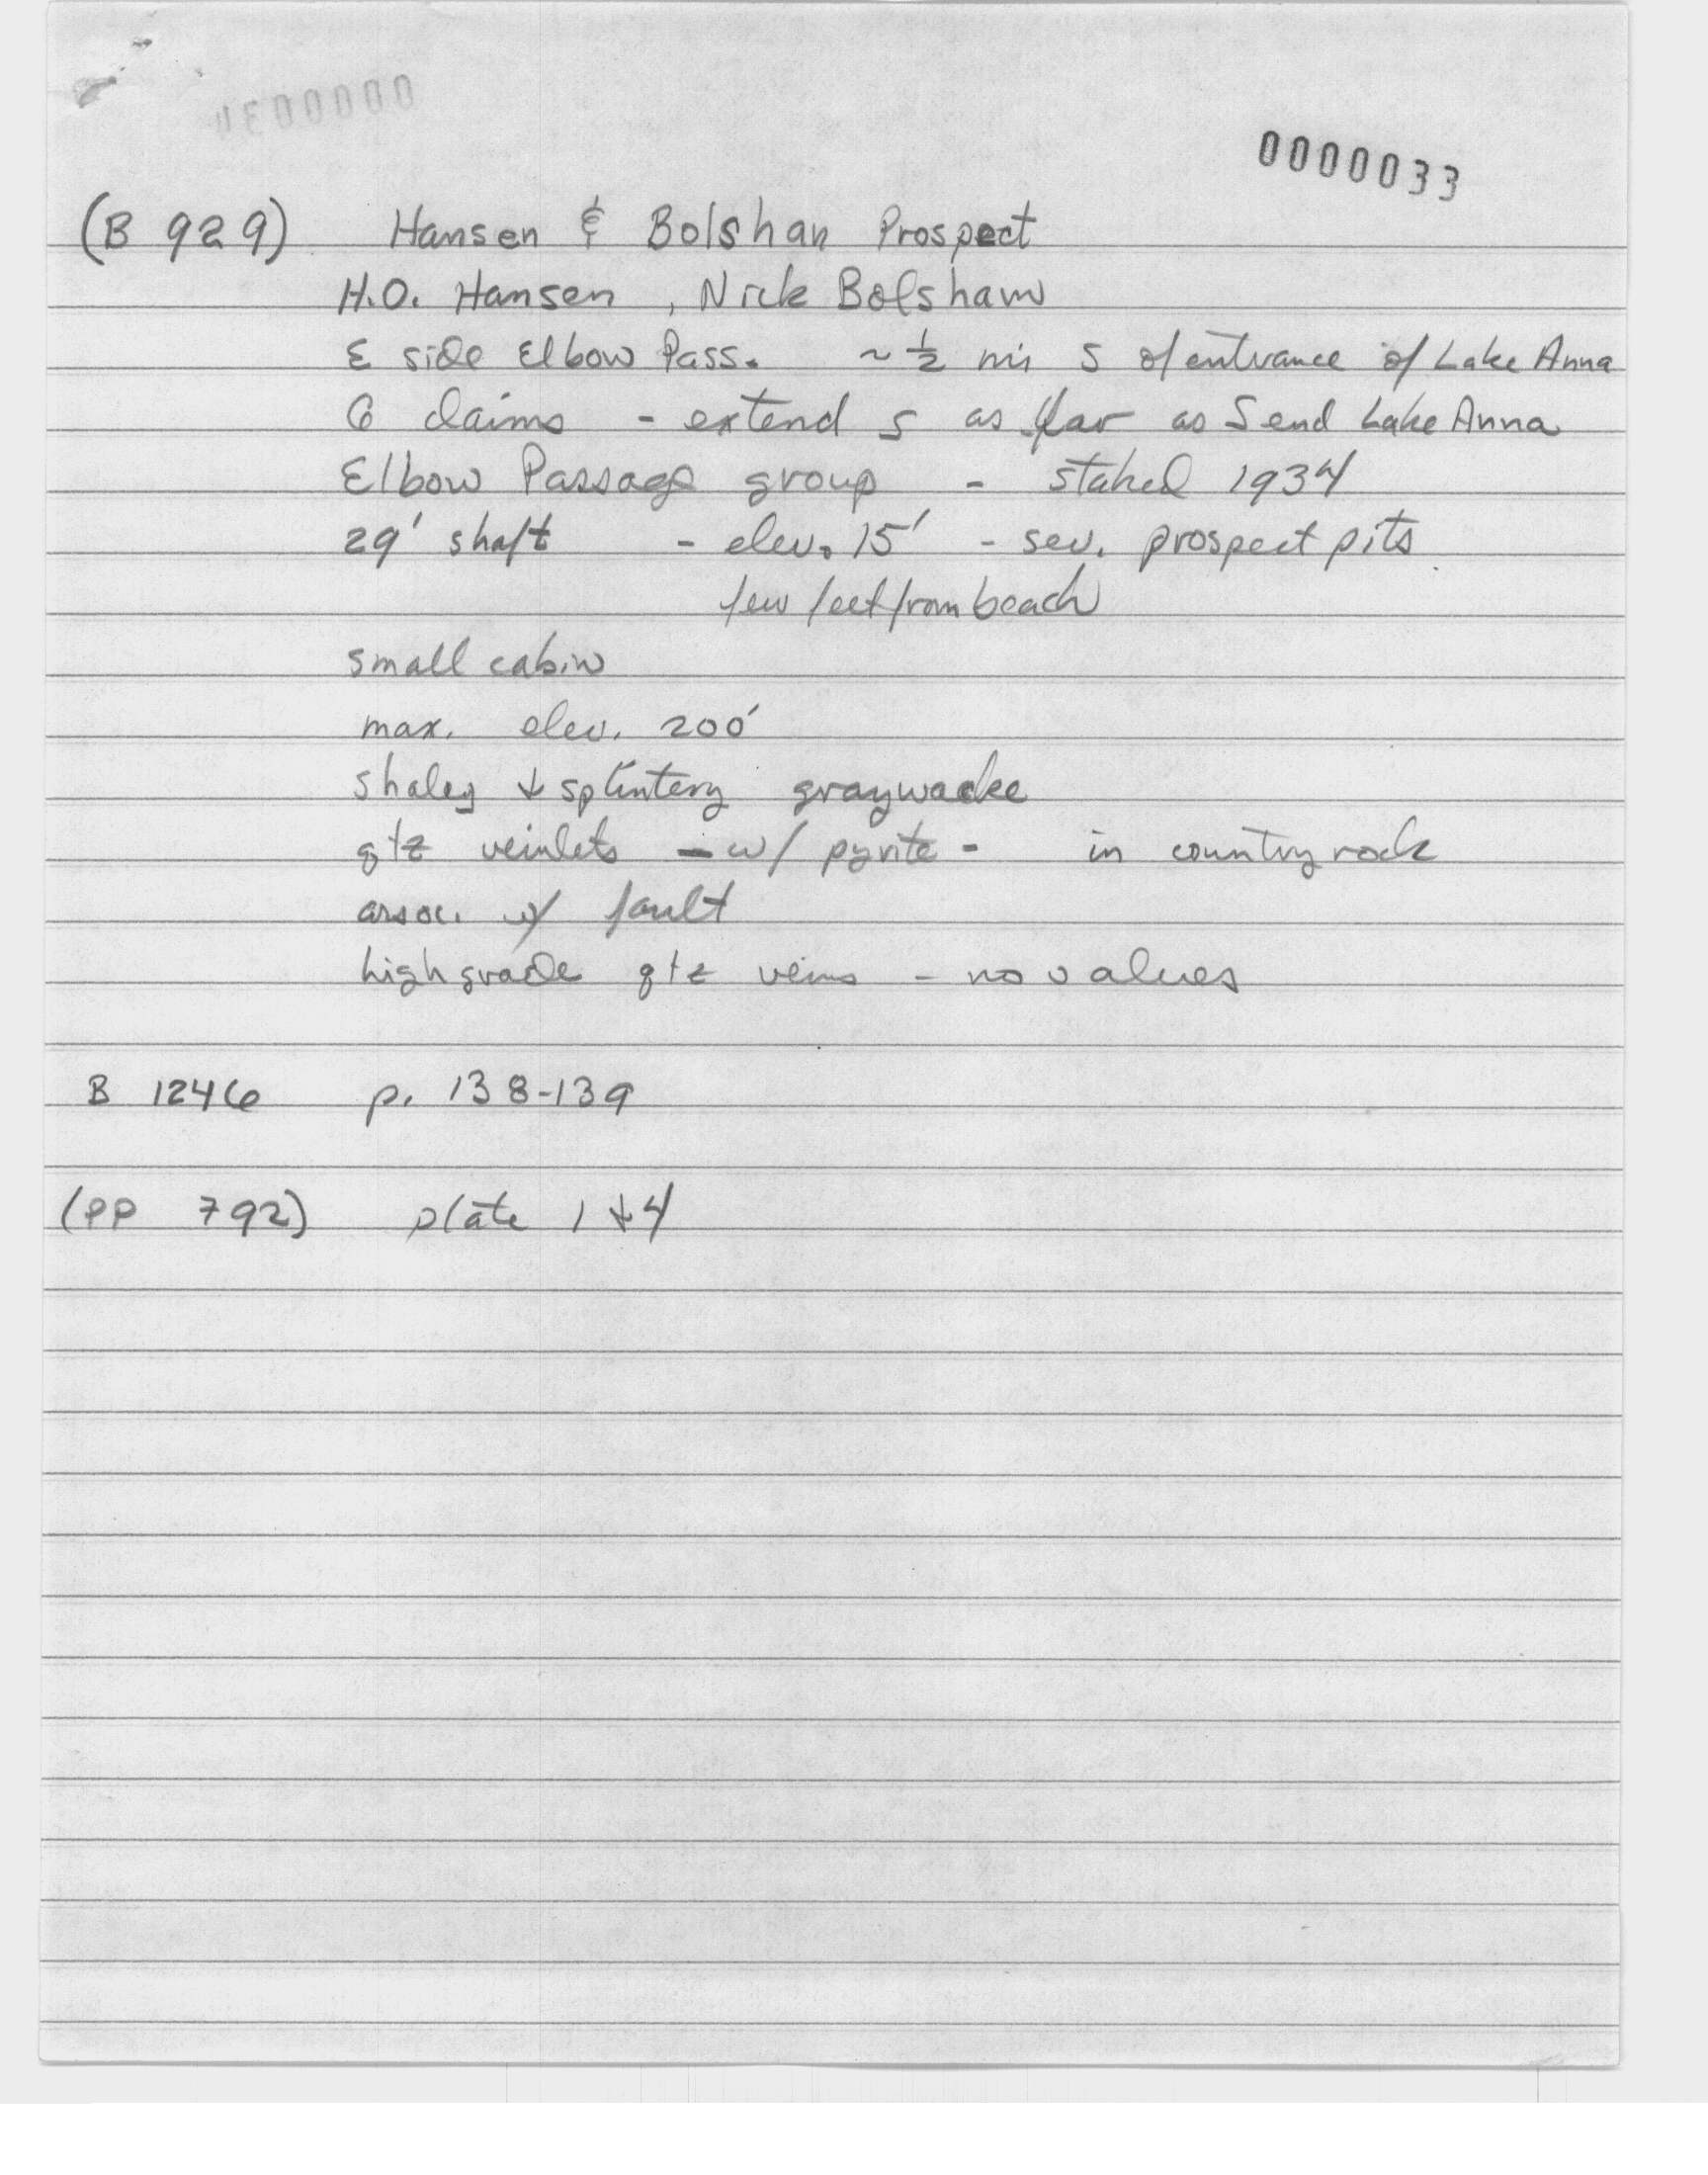 0000033
(B 929) Hansen & Bolshan Prospect
H.O. Hansen, Nick Bolsham
E side Elbow Pass. ~ ½ mi S of entrance of Lake Anna
6 claims - extend S as far as S end Lake Anna
Elbow Passage group - staked 1934
29' shaft - elev. 15' - sev. prospect pits
few feet from beach
small cabin
max. elev. 200'
shaley & splintery graywacke
qtz veinlets - w/ pyrite - in country rock
assoc. w/ fault
high grade qtz veins - no values
B 1246 p. 138-139
(PP 792) plate 1 & 4